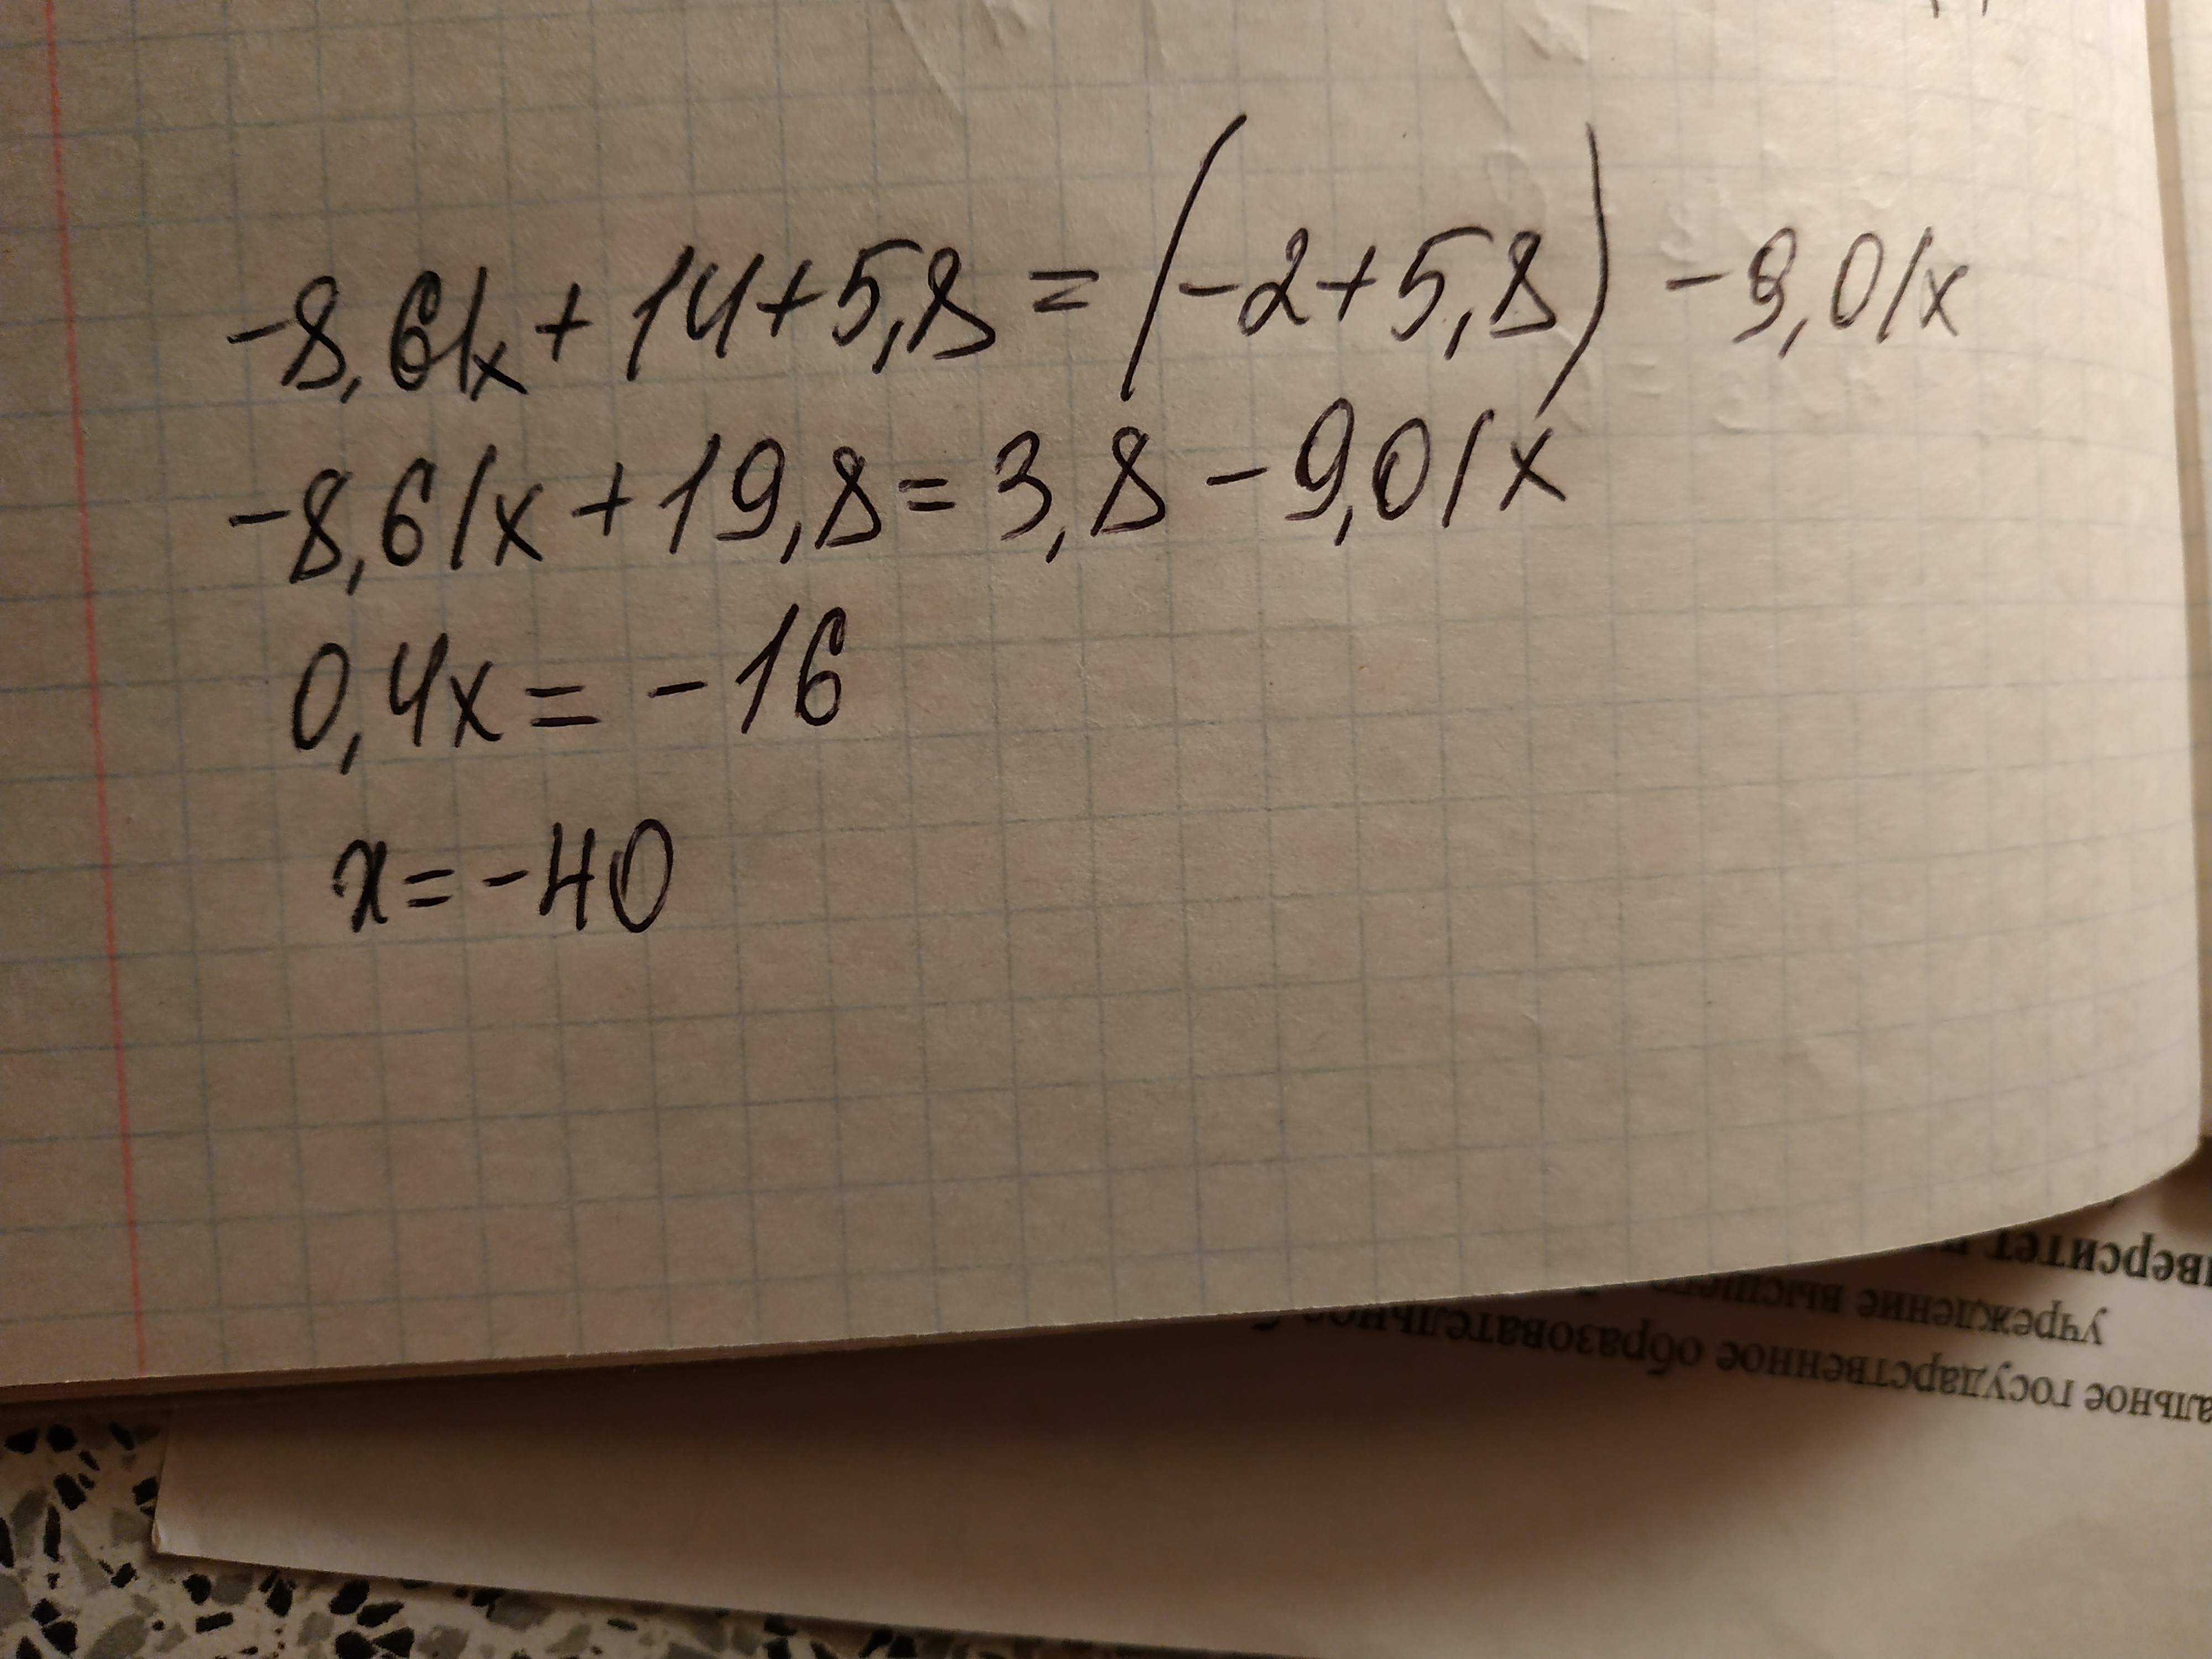 -8,61x + 14 + 5,8 = (-2 + 5,8) - 9,01x
-8,61x + 19,8 = 3,8 - 9,01x
0,4x = -16
x = -40
учреждение высшего
альное государственное образовательное